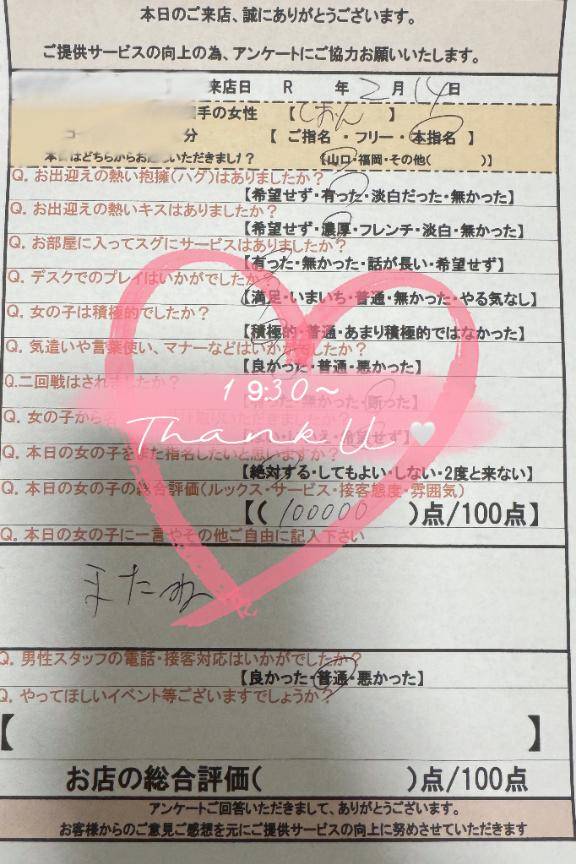 本日のご来店、誠にありがとうございます。
ご提供サービスの向上の為、アンケートにご協力お願いいたします。
来店日 R 年 2 月 14 日
手の女性 【 しおん 】
分 【 ご指名 ・ フリー ・ 本指名 】
本日はどちらからお いただきましたか? 【山口・福岡・その他( )】
Q. お出迎えの熱い抱擁(ハグ)はありましたか?
【希望せず・有った・淡白だった・無かった】
Q. お出迎えの熱いキスはありましたか?
【希望せず・濃厚・フレンチ・淡白・無かった】
Q. お部屋に入ってスグにサービスはありましたか?
【有った・無かった・話が長い・希望せず】
Q. デスクでのプレイはいかがでしたか?
【満足・いまいち・普通・無かった・やる気なし】
Q. 女の子は積極的でしたか?
【積極的・普通・あまり積極的ではなかった】
Q. 気遣いや言葉使い、マナーなどはいかがでしたか?
【良かった・普通・悪かった】
Q.二回戦はされましたか?
【有った・無かった・断った】
19:30~
Q. 女の子から
希望せず】
Thank U ♥
Q. 本日の女の子をまた指名したいと思いますか?
【絶対する・してもよい・しない・2度と来ない】
Q. 本日の女の子の総合評価(ルックス・サービス・接客態度・雰囲気)
【( 100000 )点/100点】
Q. 本日の女の子に一言やその他ご自由に記入下さい
またね
Q. 男性スタッフの電話・接客対応はいかがでしたか?
【良かった・普通・悪かった】
Q. やってほしいイベント等ございますでしょうか?
【 】
お店の総合評価( )点/100点
アンケートご回答いただきまして、ありがとうございます。
お客様からのご意見ご感想を元にご提供サービスの向上に努めさせていただきます